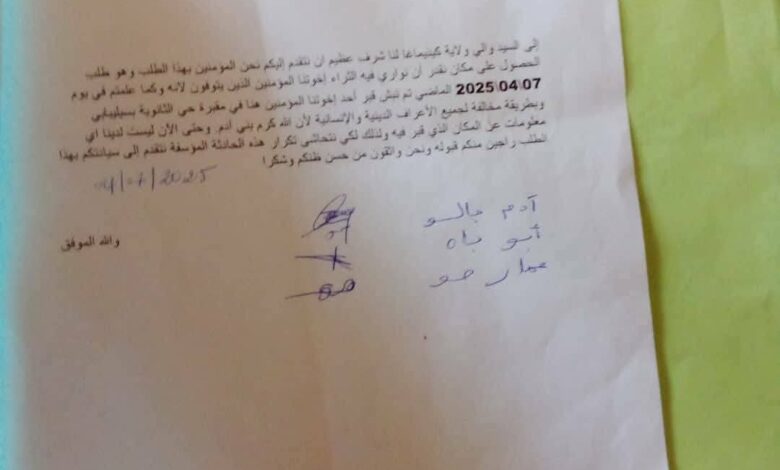 إلى السيد والي ولاية كيديماغا لنا شرف عظيم ان نتقدم إليكم نحن المؤمنين بهذا الطلب وهو طلب
الحصول على مكان نقدر أن نواري فيه الثراء إخوتنا المؤمنين الذين يتوفون لانه وكما علمتم في يوم
2025\04\07 الماضي تم نبش قبر أحد إخوتنا المؤمنين هنا في مقبرة حي الثانوية بسيليبابي
وبطريقة مخالفة لجميع الأعراف الدينية والإنسانية لأن الله كرم بني آدم. وحتى الآن ليست لدينا اي
معلومات عن المكان الذي قبر فيه ولذلك لكي نتحاشى تكرار هذه الحادثة المؤسفة نتقدم الى سيادتكم بهذا
الطلب راجين منكم قبوله ونحن واثقون من حسن ظنكم وشكرا
/2025
آدم جالو
أبو باه
والله الموفق